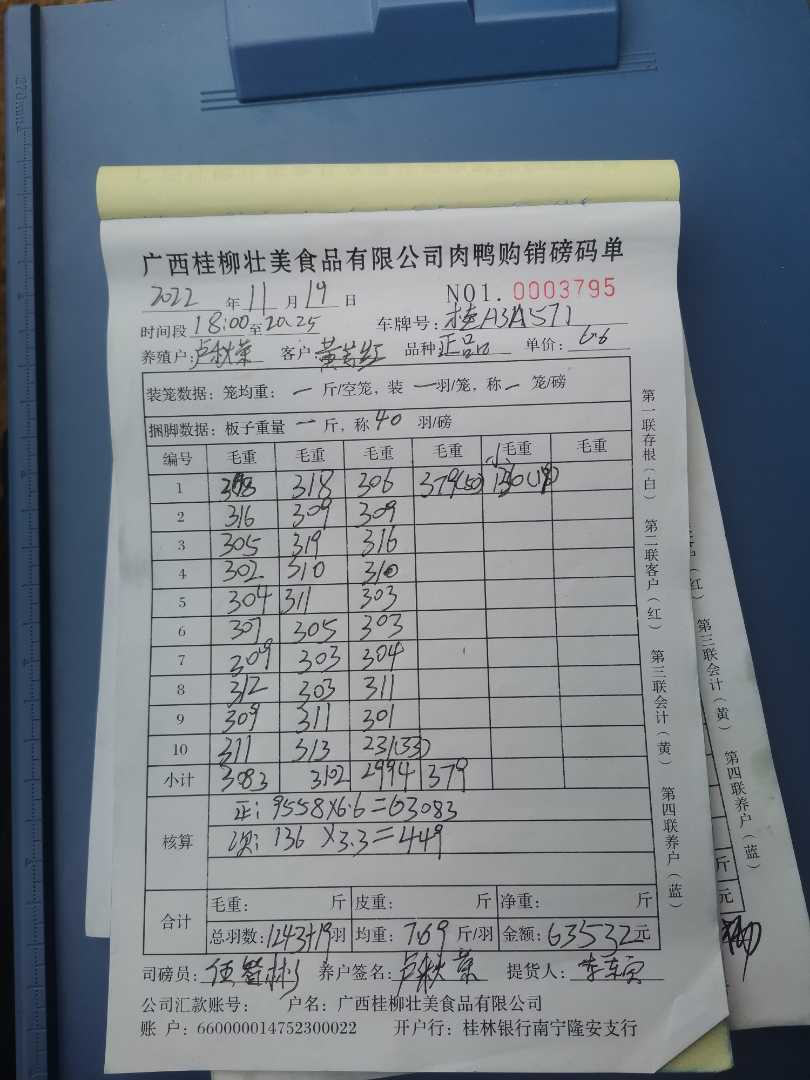 广西桂柳壮美食品有限公司肉鸭购销磅码单
2022 年 11 月 19 日 NO1. 0003795
时间段 18:00 至 20:25 车牌号: 桂A3A571
养殖户: 卢秋荣 客户: 黄 红 品种 正品 单价: 6.6
装笼数据: 笼均重: 一 斤/空笼, 装 一 羽/笼, 称 一 笼/磅
捆脚数据: 板子重量 一 斤, 称 40 羽/磅
编号 毛重 毛重 毛重 毛重 小毛重 毛重
1 308 318 306 379(50) (19)
2 316 309 309
3 305 319 316
4 302 310 310
5 304 311 303
6 307 305 303
7 309 303 304
8 312 303 311
9 309 311 301
10 311 313 231(33)
小计 3083 3102 2994 379
核算 正: 9558×6.6=63083
次: 136 ×3.3=449
合计 毛重: 斤 皮重: 斤 净重: 斤
总羽数: 1243+19 羽 均重: 7.69 斤/羽 金额: 63532 元
司磅员: 伍 彬 养户签名: 卢秋荣 提货人:
公司汇款账号: 户名: 广西桂柳壮美食品有限公司
账 户: 660000014752300022 开户行: 桂林银行南宁隆安支行
第一联存根(白) 第二联客户(红) 第三联会计(黄) 第四联养户(蓝)
(红) 第三联会计(黄) 第四联养户(蓝)
斤
元
270mm